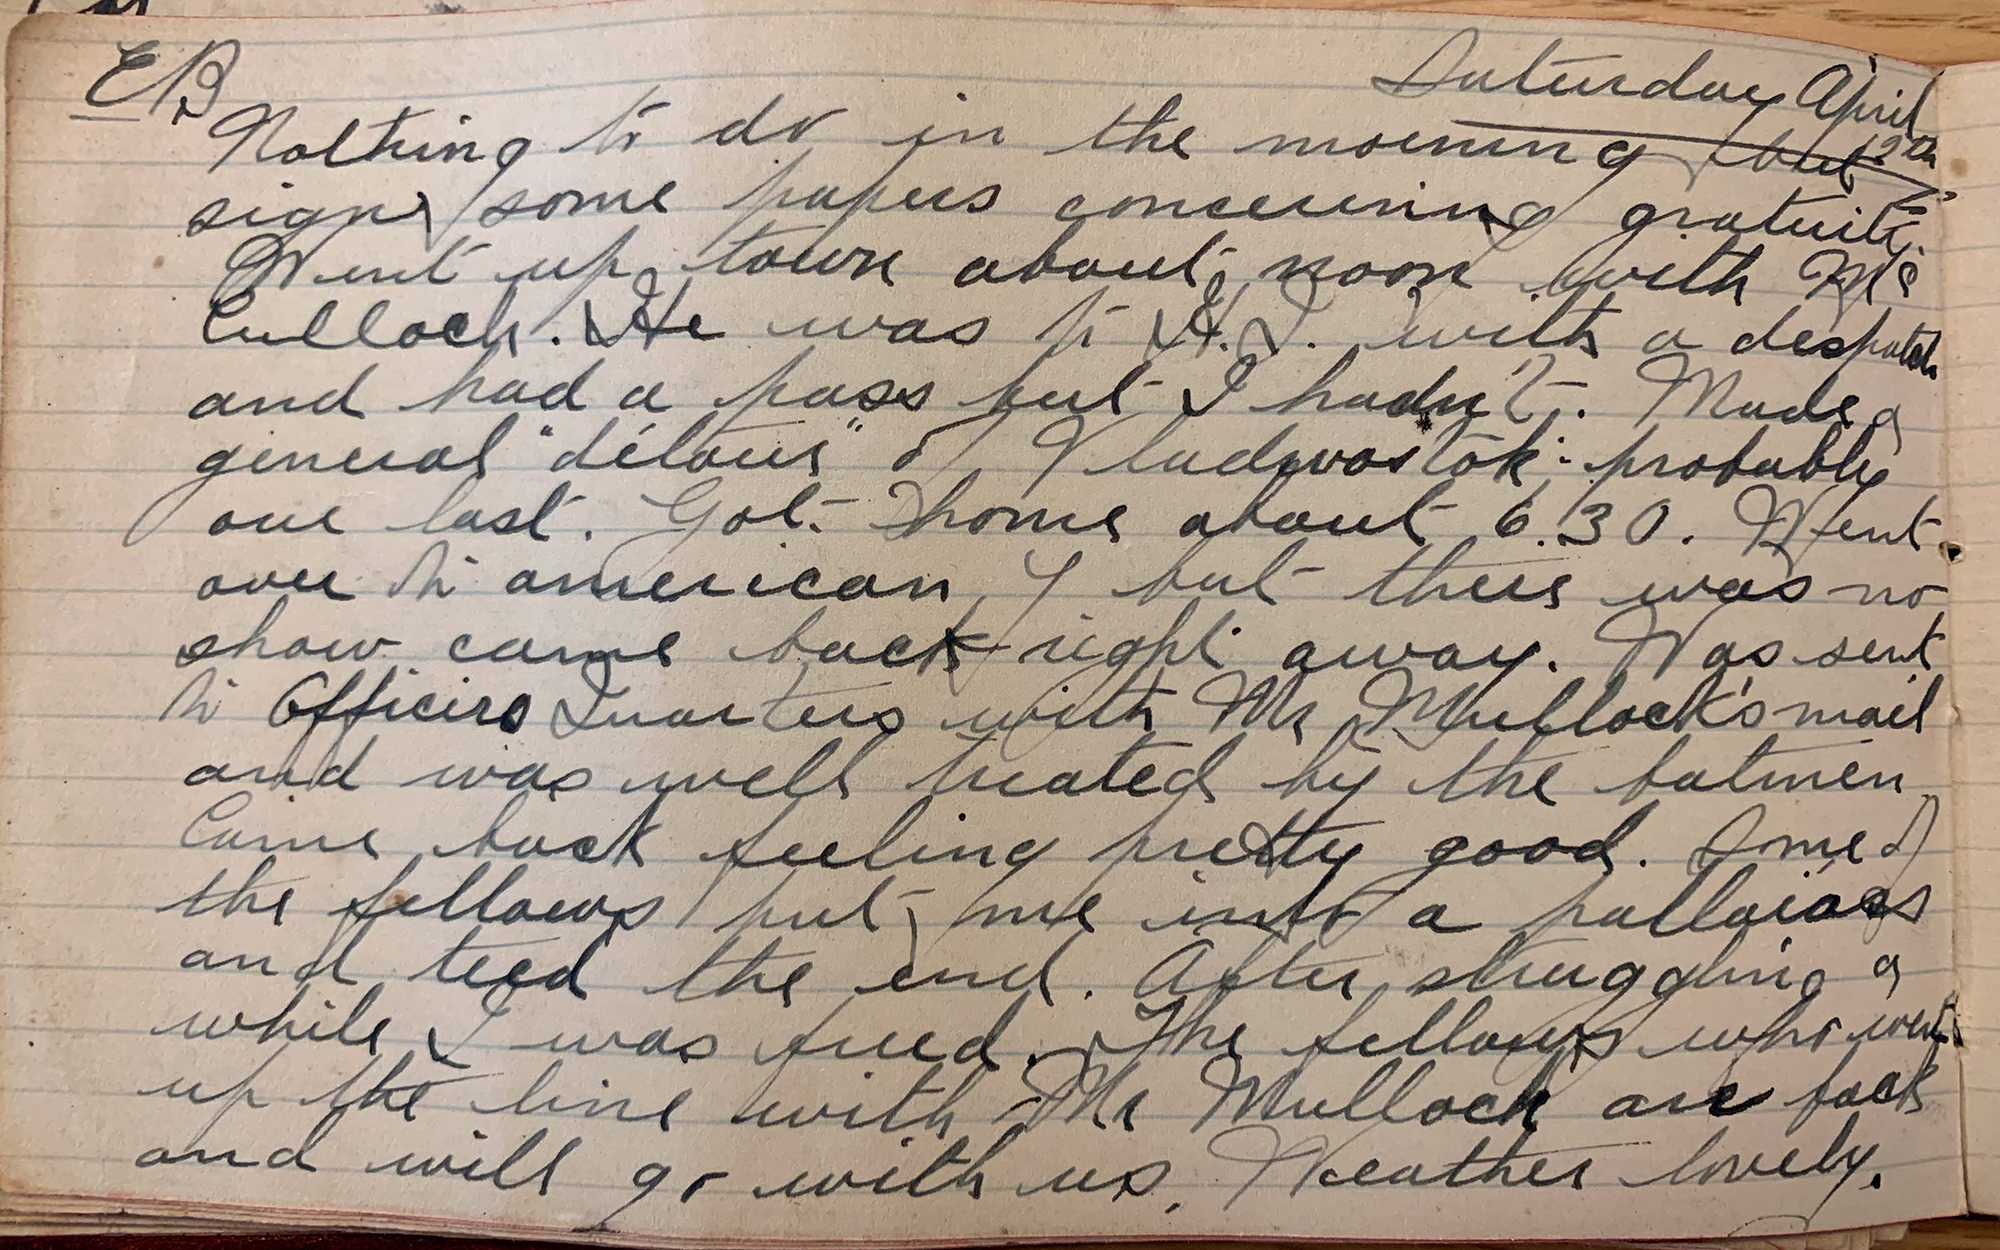 EB
Saturday April
12th
Nothing to do in the morning but
sign some papers concerning gratuity.
Went up town about noon with Mc
Culloch. He was to H.Q. with a despatch
and had a pass but I hadn't. Made a
general "détour" of Vladivostok: probably
our last. Got home about 6.30. Went
over to American Y but there was no
show came back right away. Was sent
to Officers Quarters with Mr Mullock's mail
and was well treated by the batmen
Came back feeling pretty good. Some of
the fellows put me into a palliasse
and tied the end. After struggling a
while I was freed. The fellows who went
up the line with Mr Mullock are back
and will go with us. Weather lovely.